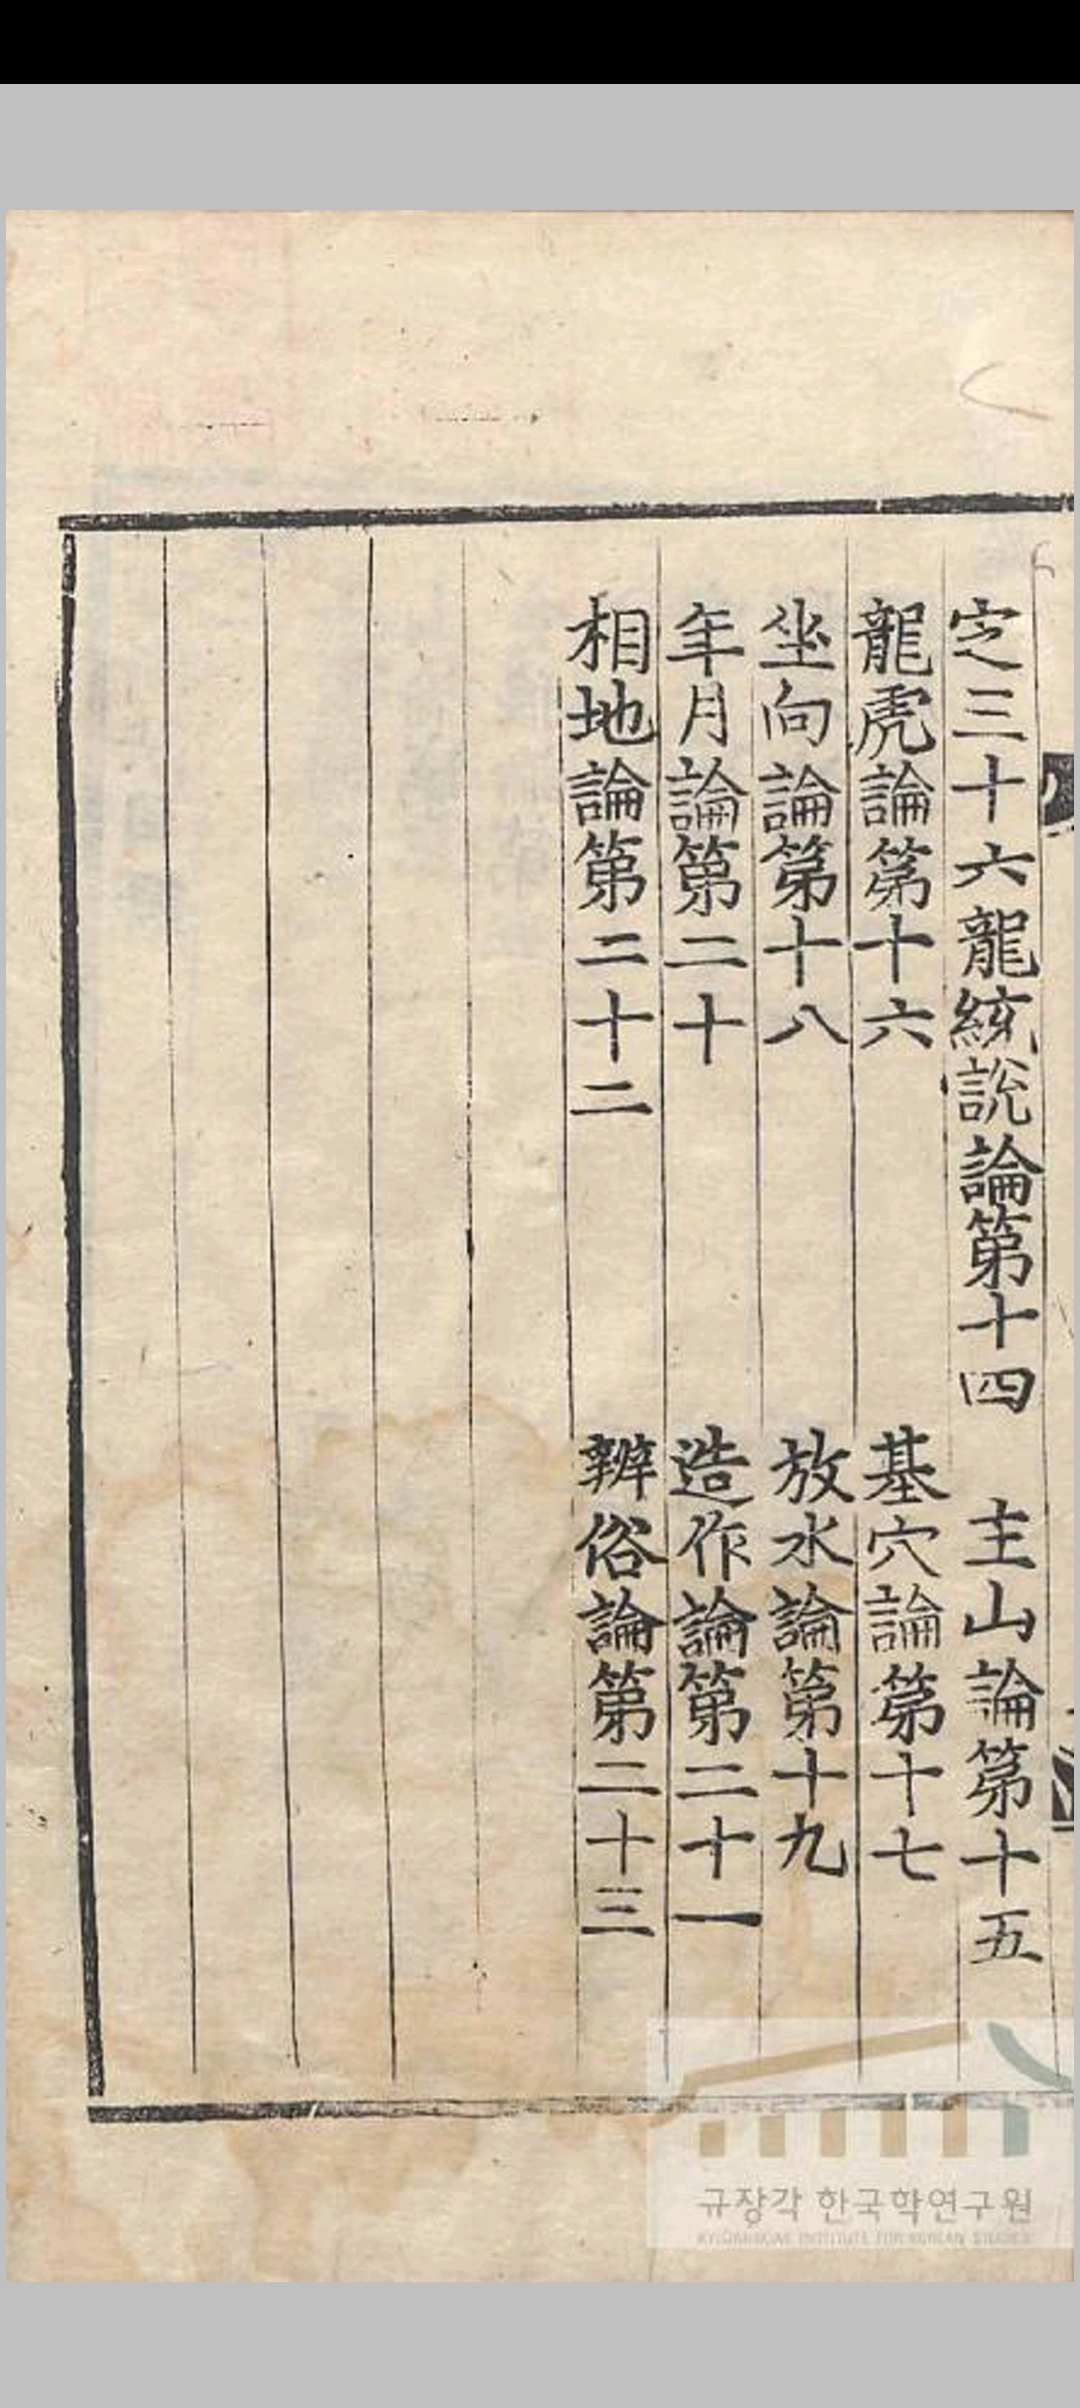 定三十六龍統說論第十四 主山論第十五
龍虎論第十六 基穴論第十七
坐向論第十八 放水論第十九
年月論第二十 造作論第二十一
相地論第二十二 辨俗論第二十三
규장각 한국학연구원
KYUJANGGAK INSTITUTE FOR KOREAN STUDIES